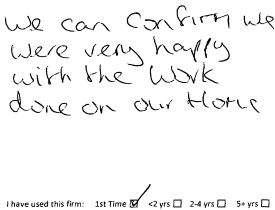 We can confirm we
were very happy
with the work
done on our Home
I have used this firm: 1st Time ☑ <2 yrs ☐ 2-4 yrs ☐ 5+ yrs ☐